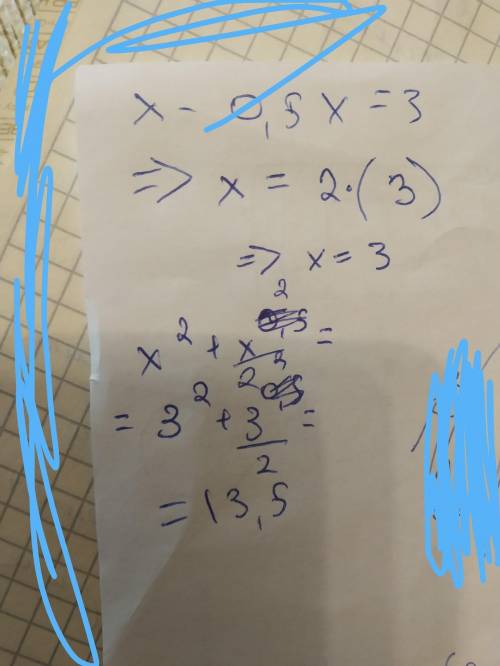 x - 0,5x = 3
=> x = 2·(3)
=> x = 3
x² + x²/2 =
= 3² + 3²/2 =
= 13,5